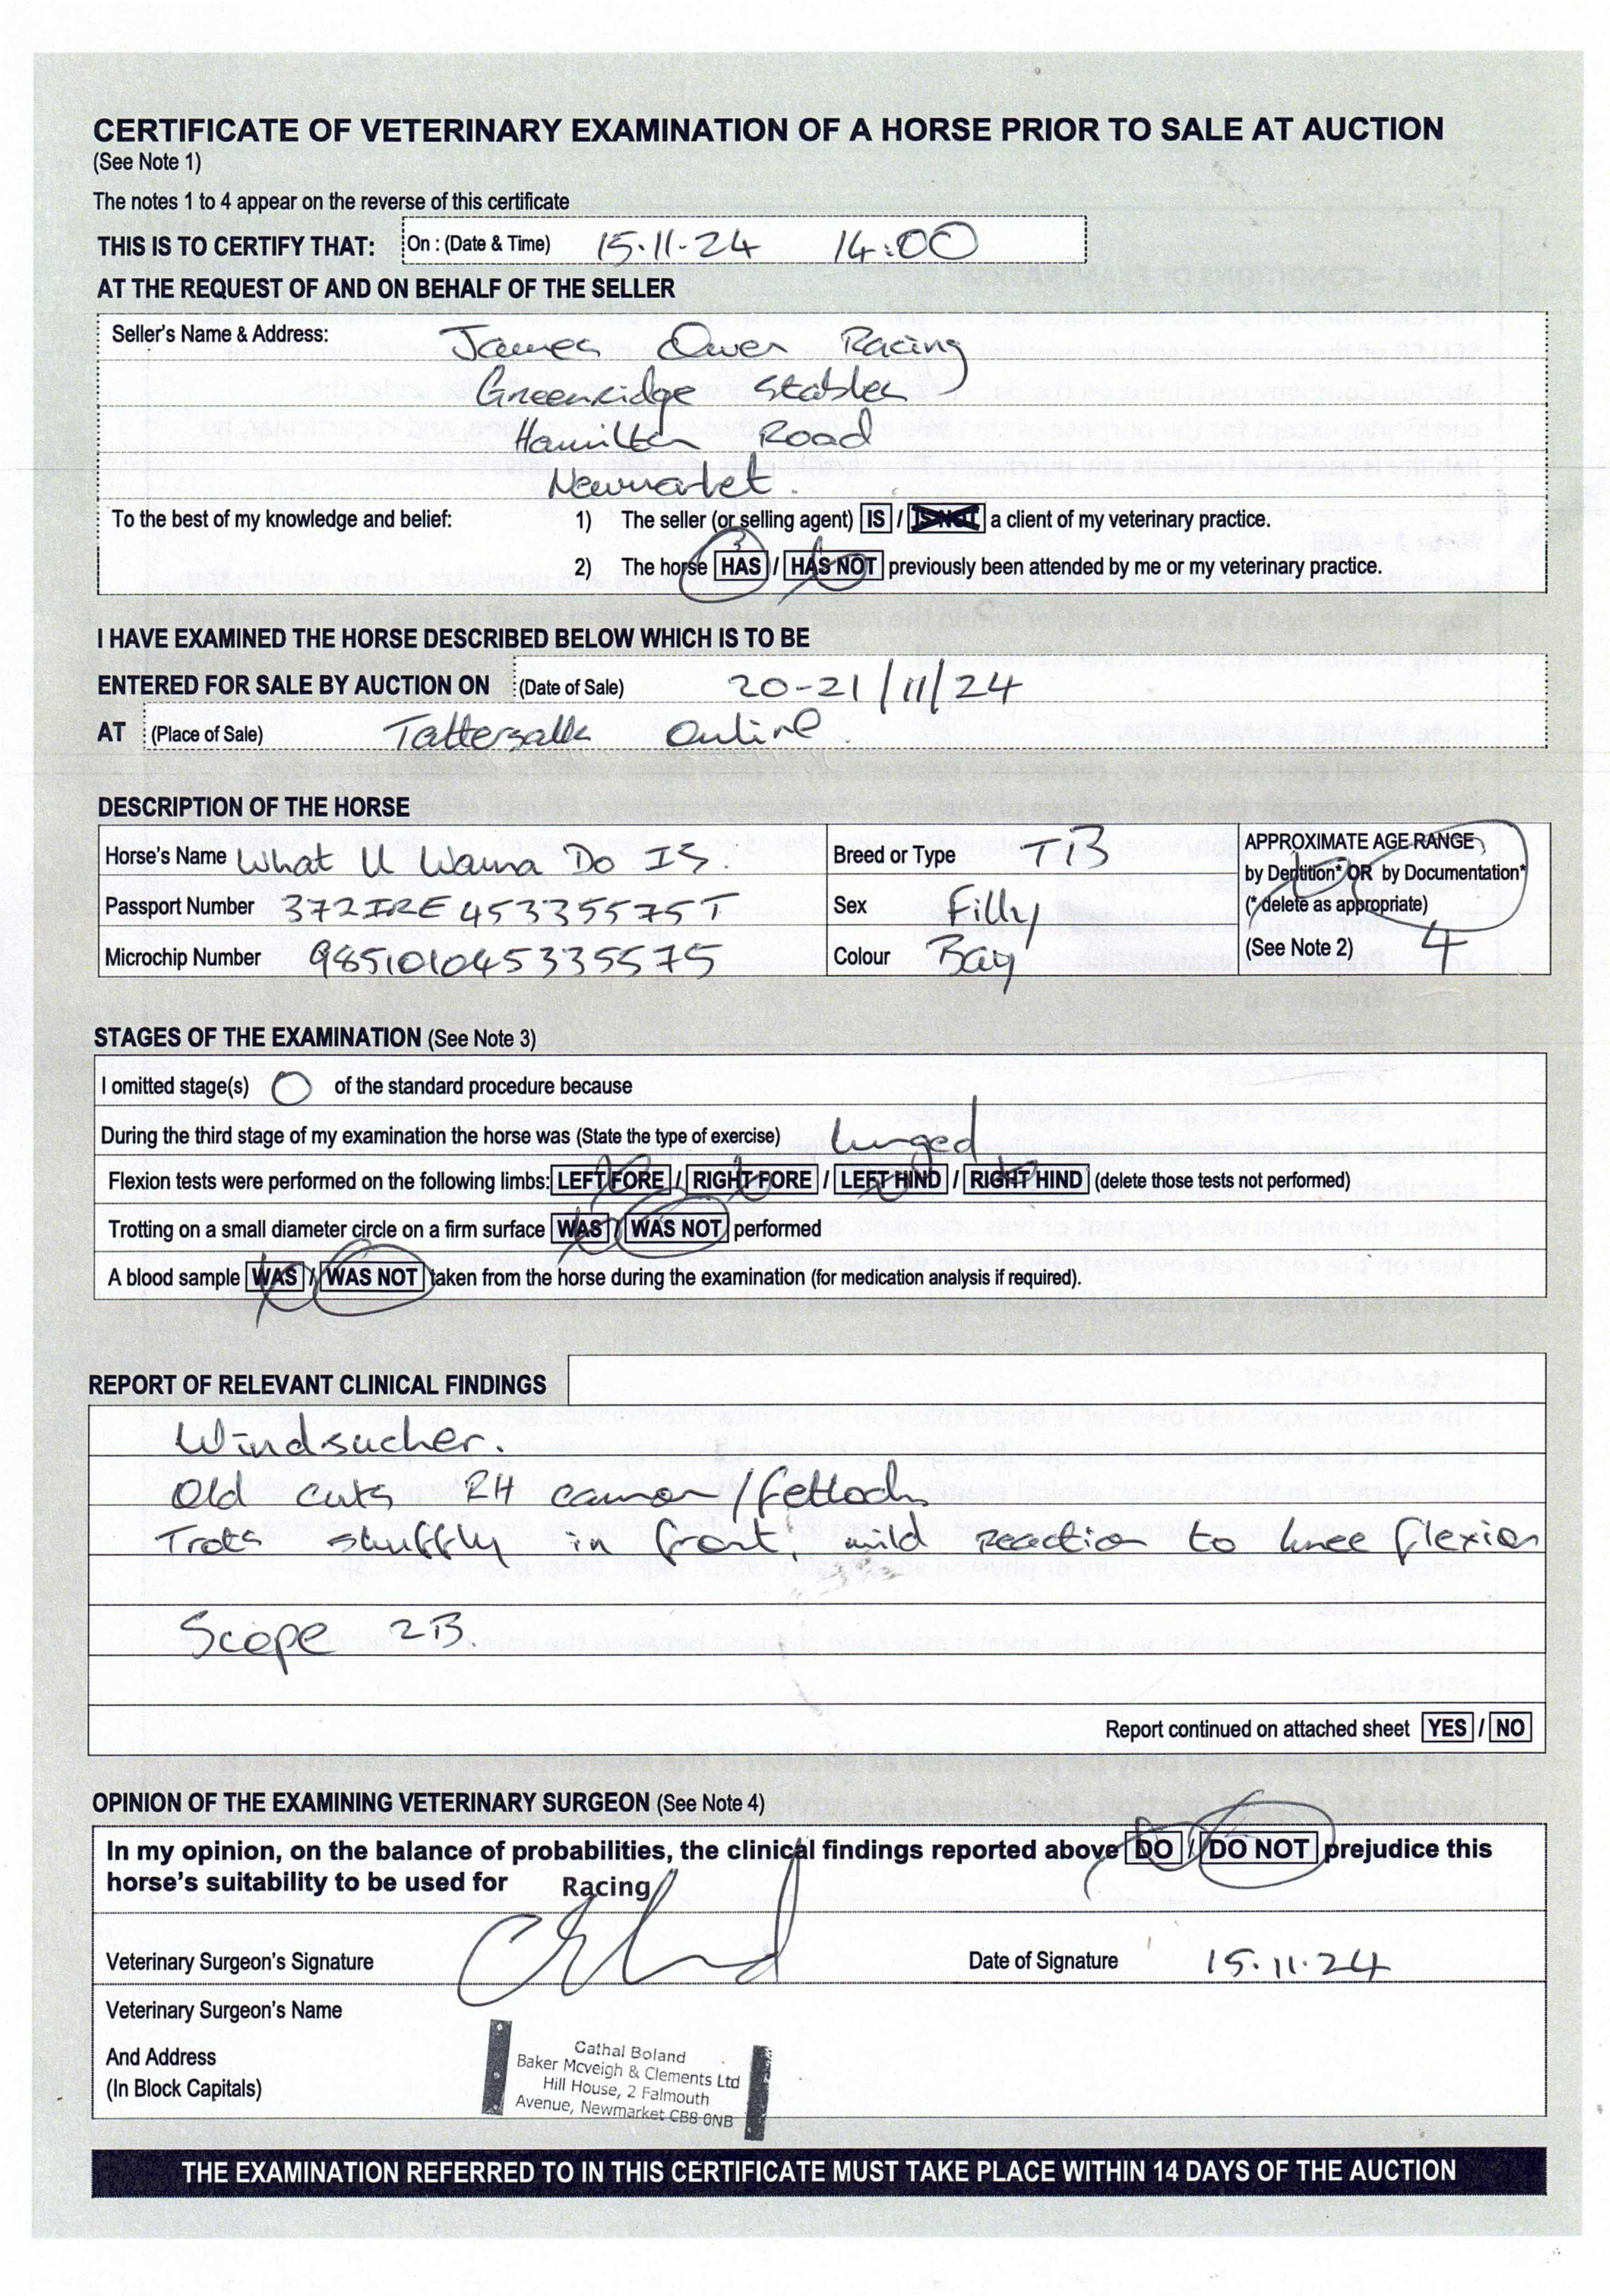 CERTIFICATE OF VETERINARY EXAMINATION OF A HORSE PRIOR TO SALE AT AUCTION
(See Note 1)
The notes 1 to 4 appear on the reverse of this certificate
THIS IS TO CERTIFY THAT: On : (Date & Time) 15.11.24 14:00
AT THE REQUEST OF AND ON BEHALF OF THE SELLER
Seller's Name & Address: James Owen Racing
Greenridge Stables
Hamilton Road
Newmarket.
To the best of my knowledge and belief: 1) The seller (or selling agent) IS / IS NOT a client of my veterinary practice.
2) The horse HAS / HAS NOT previously been attended by me or my veterinary practice.
I HAVE EXAMINED THE HORSE DESCRIBED BELOW WHICH IS TO BE
ENTERED FOR SALE BY AUCTION ON (Date of Sale) 20-21/11/24
AT (Place of Sale) Tattersalls Online.
DESCRIPTION OF THE HORSE
Horse's Name What U Wanna Do IS. Breed or Type TB APPROXIMATE AGE RANGE
by Dentition* OR by Documentation*
Passport Number 372IRE45335575T Sex Filly (* delete as appropriate)
Microchip Number 985101045335575 Colour Bay (See Note 2) 4
STAGES OF THE EXAMINATION (See Note 3)
I omitted stage(s) 0 of the standard procedure because
During the third stage of my examination the horse was (State the type of exercise) lunged
Flexion tests were performed on the following limbs: LEFT FORE / RIGHT FORE / LEFT HIND / RIGHT HIND (delete those tests not performed)
Trotting on a small diameter circle on a firm surface WAS / WAS NOT performed
A blood sample WAS / WAS NOT taken from the horse during the examination (for medication analysis if required).
REPORT OF RELEVANT CLINICAL FINDINGS
Windsucker.
Old cuts RH cannon/fetlock
Trots shuffly in front, mild reaction to knee flexion
Scope 2B.
Report continued on attached sheet YES / NO
OPINION OF THE EXAMINING VETERINARY SURGEON (See Note 4)
In my opinion, on the balance of probabilities, the clinical findings reported above DO / DO NOT prejudice this
horse's suitability to be used for Racing
Veterinary Surgeon's Signature Date of Signature 15.11.24
Veterinary Surgeon's Name
And Address
(In Block Capitals)
Cathal Boland
Baker Mcveigh & Clements Ltd
Hill House, 2 Falmouth
Avenue, Newmarket CB8 0NB
THE EXAMINATION REFERRED TO IN THIS CERTIFICATE MUST TAKE PLACE WITHIN 14 DAYS OF THE AUCTION